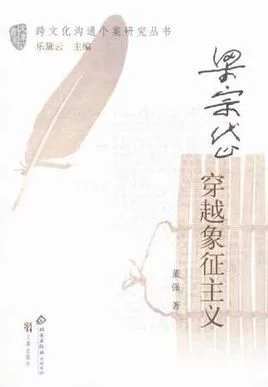 跨文化沟通个案研究丛书
乐黛云 主编
梁宗岱
穿越象征主义
董强 著
文津出版社